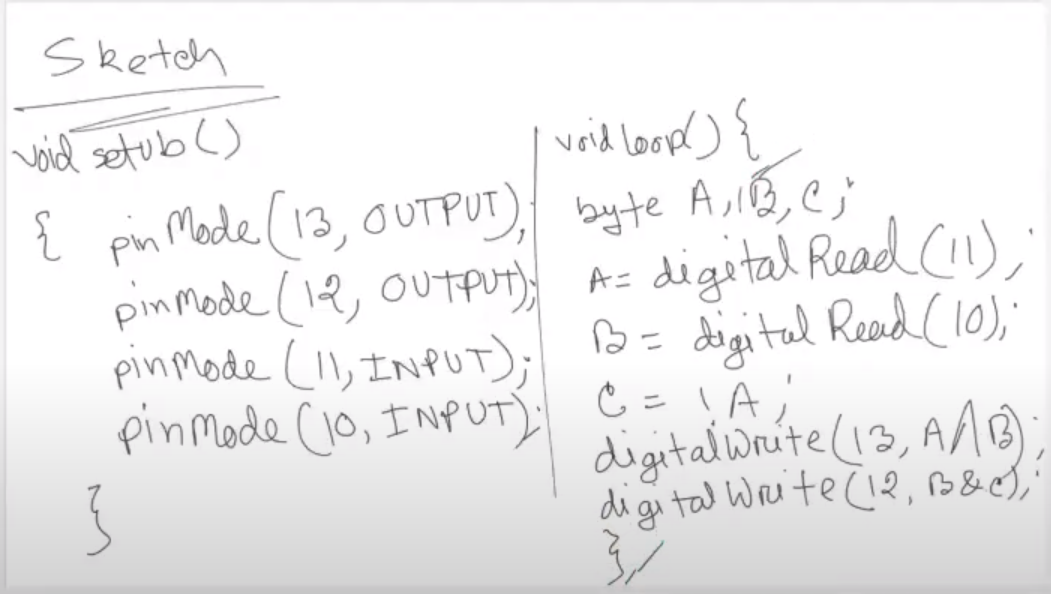 Sketch
void setub()
{ pinMode(13, OUTPUT);
pinMode(12, OUTPUT);
pinMode(11, INPUT);
pinMode(10, INPUT);
}
void loop() {
byte A, B, C;
A= digitalRead(11);
B = digital Read(10);
C = !A;
digitalWrite(13, A^B);
digitalWrite(12, B&C);
}